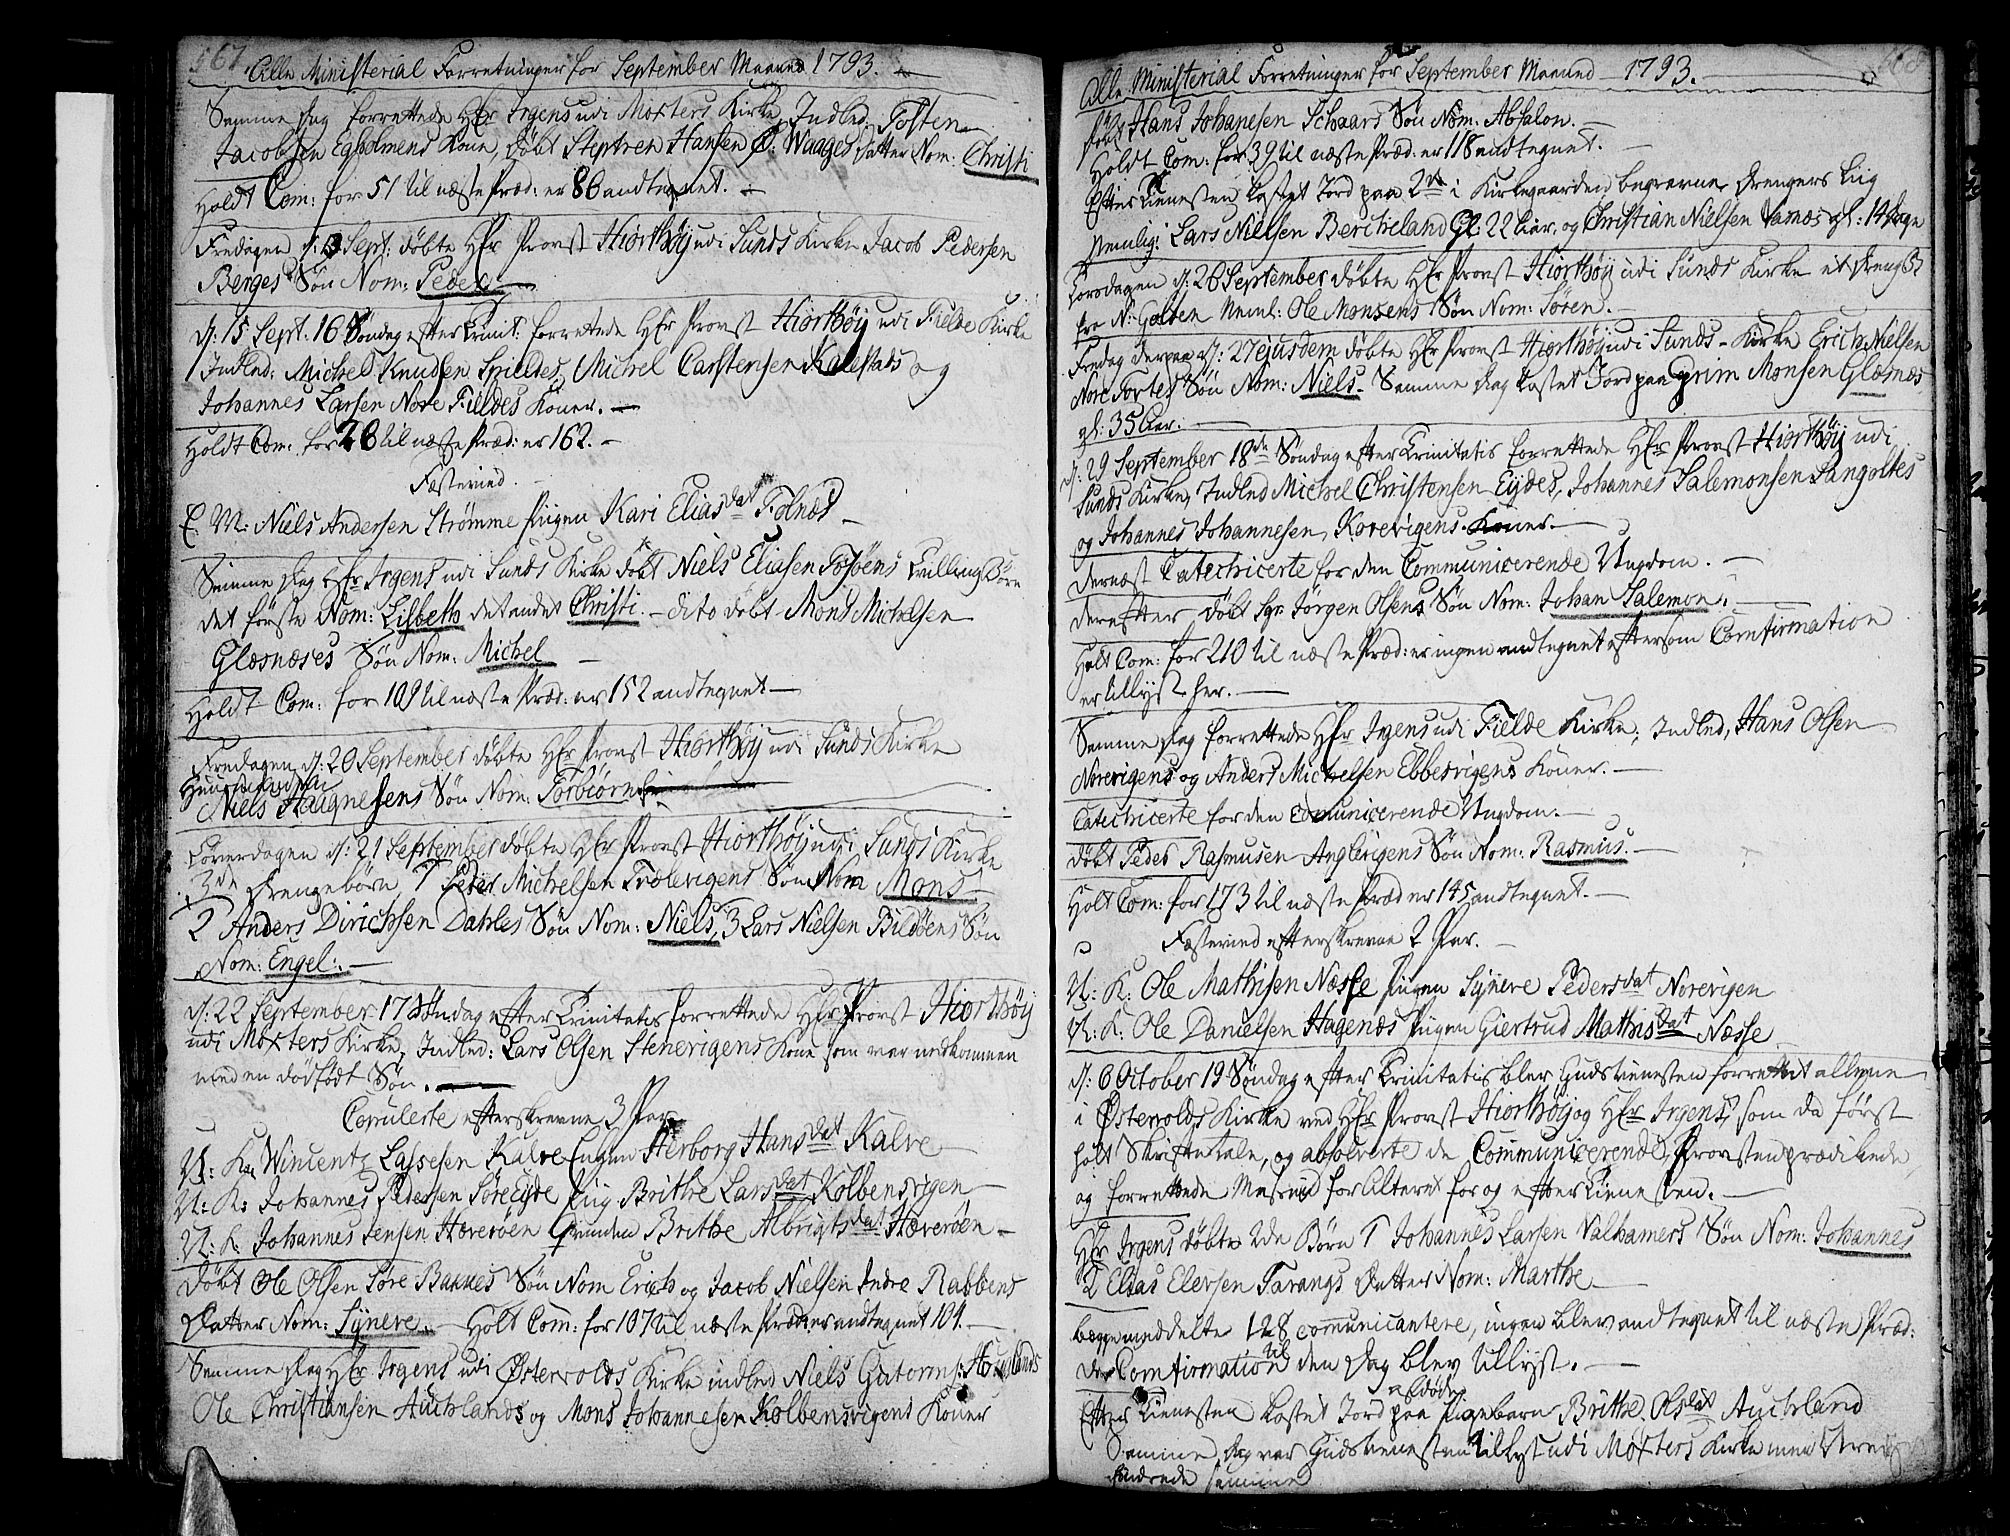 567.
Alle Ministerial Forretninger for September Maaned 1793.
Samme Dag forrettede Hr Irgens udi Moxters Kirke, Indled Tosten
Jacobsen Egholmens Kone, døbt Steph Hansen Ø: Waages Datter Nom: Christi
Holdt Com: for 51 til næste Præd: er 86 andtegnet.
Fredagen d: Sept: døbte Hr Provst Hiorthöÿ udi Sunds Kirke Jacob Pedersen
Berges Søn Nom: Peder
d: 15 Sept. 16 Søndag efter Trinit: forrettede Hr Provst Hiorthöÿ udi Fielde Kirke
Indled: Michel Knudsen Spildes, Michel Carstensen Kalestads og
Johannes Larsen Nore Fieldes Koner.
Holdt Com: for 26 til næste Præd: er 162.
Fæstevied.
E M: Niels Andersen Strømme Pigen Kari Eliasdat Tofnæs
Samme Dag Hr Irgens udi Sunds Kirke døbt Niels Eliasen Tosøens Tvilling Børn
det første Nom: Lisbeth det andet Christi. - dito døbt Mons Michelsen
Glæsnæses Søn Nom: Michel
Holdt Com: for 109 til næste Præd: er 152 andtegnet
Fredagen d: 20 September døbte Hr Provst Hiorthöÿ udi Sunds Kirke
Niels Haagnesens Søn Nom: Torbiørn
Løverdagen d: 21 September døbte Hr Provst Hiorthöÿ udi Sunds Kirke
3de Drengebørn, 1 Peder Michelsen Trælevigens Søn Nom Mons
2 Anders Dirichsen Dahles Søn Nom: Niels, 3 Lars Nielsen Bildøens Søn
Nom: Engel.
d: 22 September 17 Søndag efter Trinitatis forrettede Hr Provst Hiorthöÿ
udi Moxters Kirke, Indled: Lars Olsen Stenevigens Kone som var nedkommen
med en dødfødt Søn.
Copulerte efterskrevne 3 Par
U: K: Wincentz Lassesen Kalve Enken Herborg Hansdat Kalve
U: K: Johannes Pedersen Søre Eyde Pig Brithe Larsdat Kolbensvigen
U: K: Johannes Jensen Hæverøen Qvinden Brithe Albrigtsdat Hæverøen
Døbt Ole Olsen Søre Backes Søn Nom Erich og Jacob Nielsen Indre Rabbens
Datter Nom: Syneve. Holt Com: for 107 til næste Præd: er andtegnet 104.
Samme Dag Hr Irgens udi Østervolds Kirke indled Niels Gutorms:
Ole Christiansen Auchlands og Mons Johannesen Kolbensvigens Koner
568
Alle Ministerial Forretninger for September Maaned 1793.
døbt Hans Johanesen Schaars Søn Nom: Absalon.
Holdt Com: for 39 til næste Præd: er 118 andtegnet.
Efter Tienesten kastet Jord paa 2de i Kirkegaarden begravne Drengers Liig
Nemlig: Lars Nielsen Bercheland Gl: 22 Aar. og Christian Nielsen Vamos gl: 14 dage
Torsdagen d: 26 September døbte Hr Provst Hiorthöÿ udi Sunds Kirke et Drenge B
fra N: Golten Neml: Ole Monsens Søn Nom: Søren.
Fredag derpaa d: 27 ejusdem døbte Hr Provst Hiorthöÿ udi Sunds Kirke Erich Nielsen
Nore Toftes Søn Nom: Niels. Samme Dag kastet Jord paa Grim Monsen Glæsnæs
gl: 35 Aar.
d: 29 September 18de Søndag efter Trinitatis forrettede Hr Provst Hiorthöÿ udi
Sunds Kirke, Indled Michel Christensen Eydes, Johannes Salemonsen Sangoltes
og Johannes Johannesen Korevigens Koner.
dernæst Catechicerte for den Communicerende Ungdom.
derefter døbt Sgr Jørgen Olsens Søn Nom: Johan Salemon.
Holt Com: for 210 til næste Præd: er ingen andtegnet eftersom Comfirmation
er tillyst her.
Samme Dag forrettede Hr Irgens udi Fielde Kirke, Indled, Hans Olsen
Norevigens og Anders Michelsen Ebbesvigens Koner.
Catechicerte for den Comunicerende Ungdom.
døbt Peder Rasmusen Anglevigens Søn Nom: Rasmus.
Holt Com: for 173 til næste Præd er 145 andtegnet.
Fæstevied efterskrevne 2 Par.
U: K: Ole Mathisen Næsse Pigen Syneve Pedersdat Norevigen
U: K: Ole Danielsen Hagenæs Pigen Giertrud Mathisdat Næsse
d: 6 October 19 Søndag efter Trinitatis blev Gudstienesten forrettet allene
i Østervolds Kirke ved Hr Provst Hiorthöÿ og Hr Irgens, som da først
holt Skriftetale, og absolverte de Communicerende, Provsten prædikede,
og forrettede Messen for Alteret for og efter Tienesten.
Hr Irgens døbte 2de Børn 1 Johannes Larsen Valhamers Søn Nom: Johannes
2 Elias Elersen Tarangs Datter Nom: Marthe
begge meddelte 128 communicantere, ingen blev andtegnet til næste Præd:
da Comfirmation til den Dag blev tillyst.
Efter Tienesten kastet Jord paa afdøde Pigebarn Brithe Olsdat Auchland
Samme Dag var Gudstienesten tillyst udi Moxters Kirke men
hindrede samme